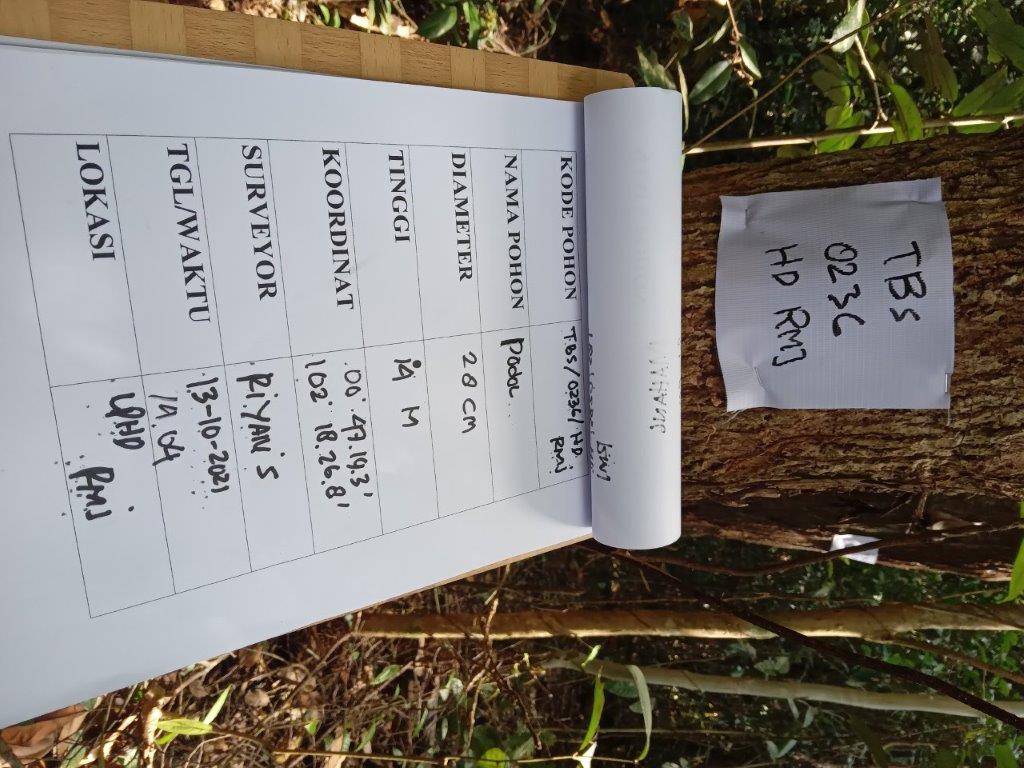 TBS
0236
HD RMJ
KODE POHON TBS/0236/HD
RMJ
NAMA POHON
DIAMETER 28 CM
TINGGI 14 M
KOORDINAT 00° 47.19.3'
102° 18.26.8'
SURVEYOR RIYAN S
TGL/WAKTU 13-10-2021
14.04
LOKASI LPHD
RMJ